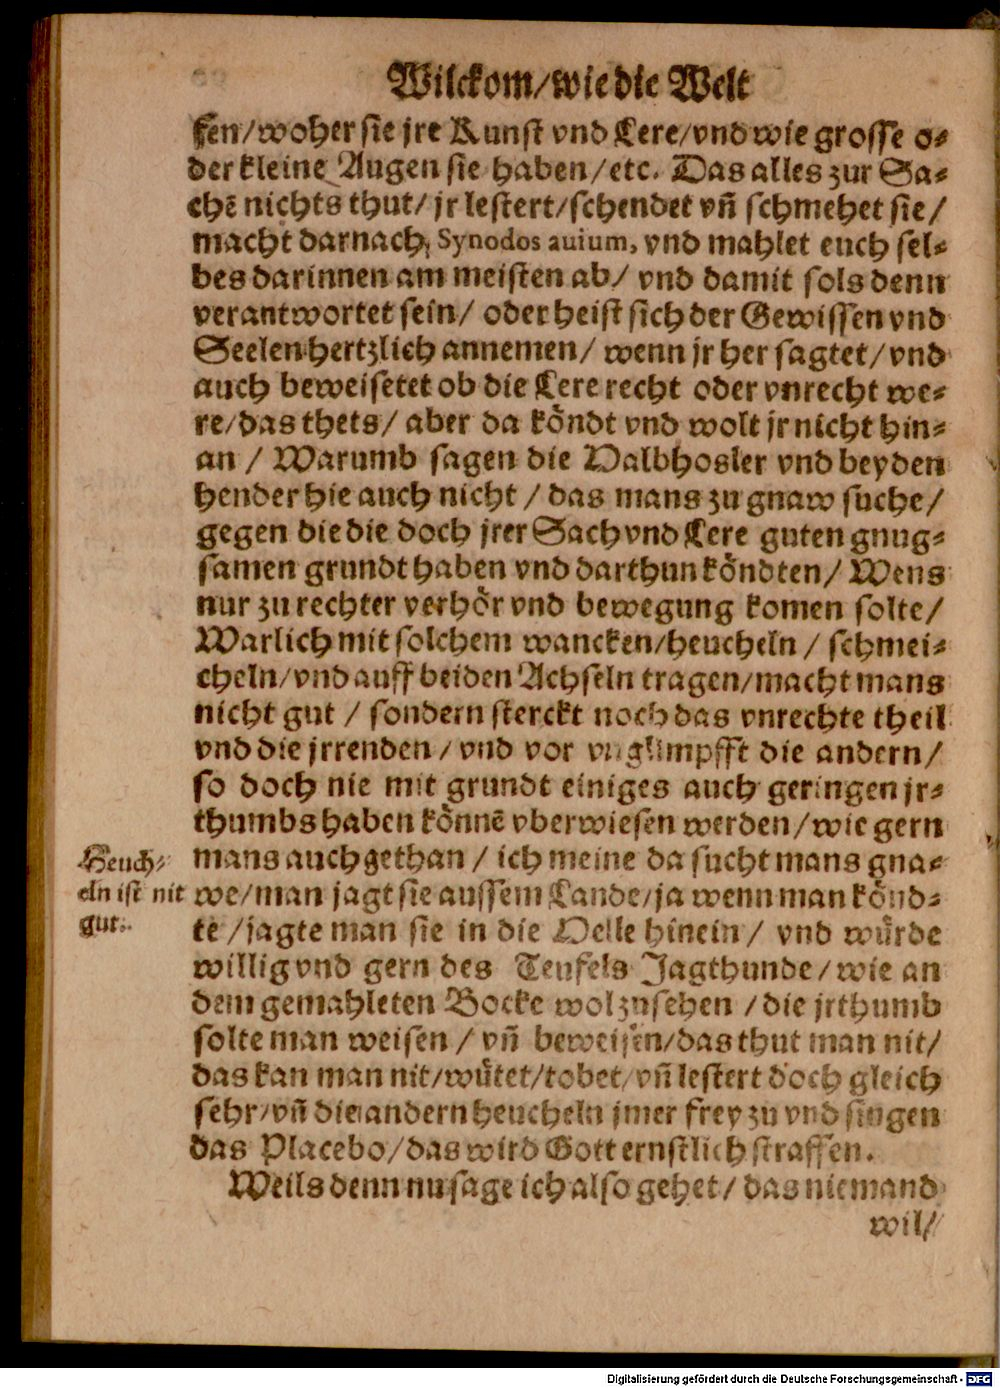 Wilckom/wie die Welt
sen/woher sie jre Kunst vnd Lere/vnd wie grosse o⸗
der kleine Augen sie haben/etc. Das alles zur Sa⸗
chē nichts thut/jr lestert/schendet vñ schmehet sie/
macht darnach, Synodos auium, vnd mahlet euch sel⸗
bes darinnen am meisten ab/ vnd damit sols denn
verantwortet sein/ oder heist sich der Gewissen vnd
Seelen hertzlich annemen/ wenn jr her sagtet/ vnd
auch beweisetet ob die Lere recht oder vnrecht we⸗
re/das thets/ aber da köndt vnd wolt jr nicht hin⸗
an / Warumb sagen die Halbhosler vnd beyden
hender hie auch nicht / das mans zu gnaw suche/
gegen die die doch jrer Sach vnd Lere guten gnug⸗
samen grundt haben vnd darthun köndten/ Wens
nur zu rechter verhör vnd bewegung komen solte/
Warlich mit solchem wancken/heucheln / schmei⸗
cheln/vnd auff beiden Achseln tragen/macht mans
nicht gut / sondern sterckt noch das vnrechte theil
vnd die jrrenden / vnd vor vnglimpfft die andern/
so doch nie mit grundt einiges auch geringen jr⸗
thumbs haben könnē vberwiesen werden/wie gern
mans auch gethan / ich meine da sucht mans gna⸗
Heuch⸗
eln ist nit
gut.
we/man jagt sie aussem Lande/ja wenn man könd⸗
te /jagte man sie in die Helle hinein/ vnd würde
willig vnd gern des Teufels Jagthunde/wie an
dem gemahleten Bocke wol zu sehen /die jrthumb
solte man weisen / vñ beweisen/das thut man nit/
das kan man nit/wütet/tobet/vñ lestert doch gleich
sehr/vñ die andern heucheln jmer frey zu vnd singen
das Placebo/das wird Gott ernstlich straffen.
Weils denn nu sage ich also gehet/ das niemand
wil/
Digitalisierung gefördert durch die Deutsche Forschungsgemeinschaft - DFG